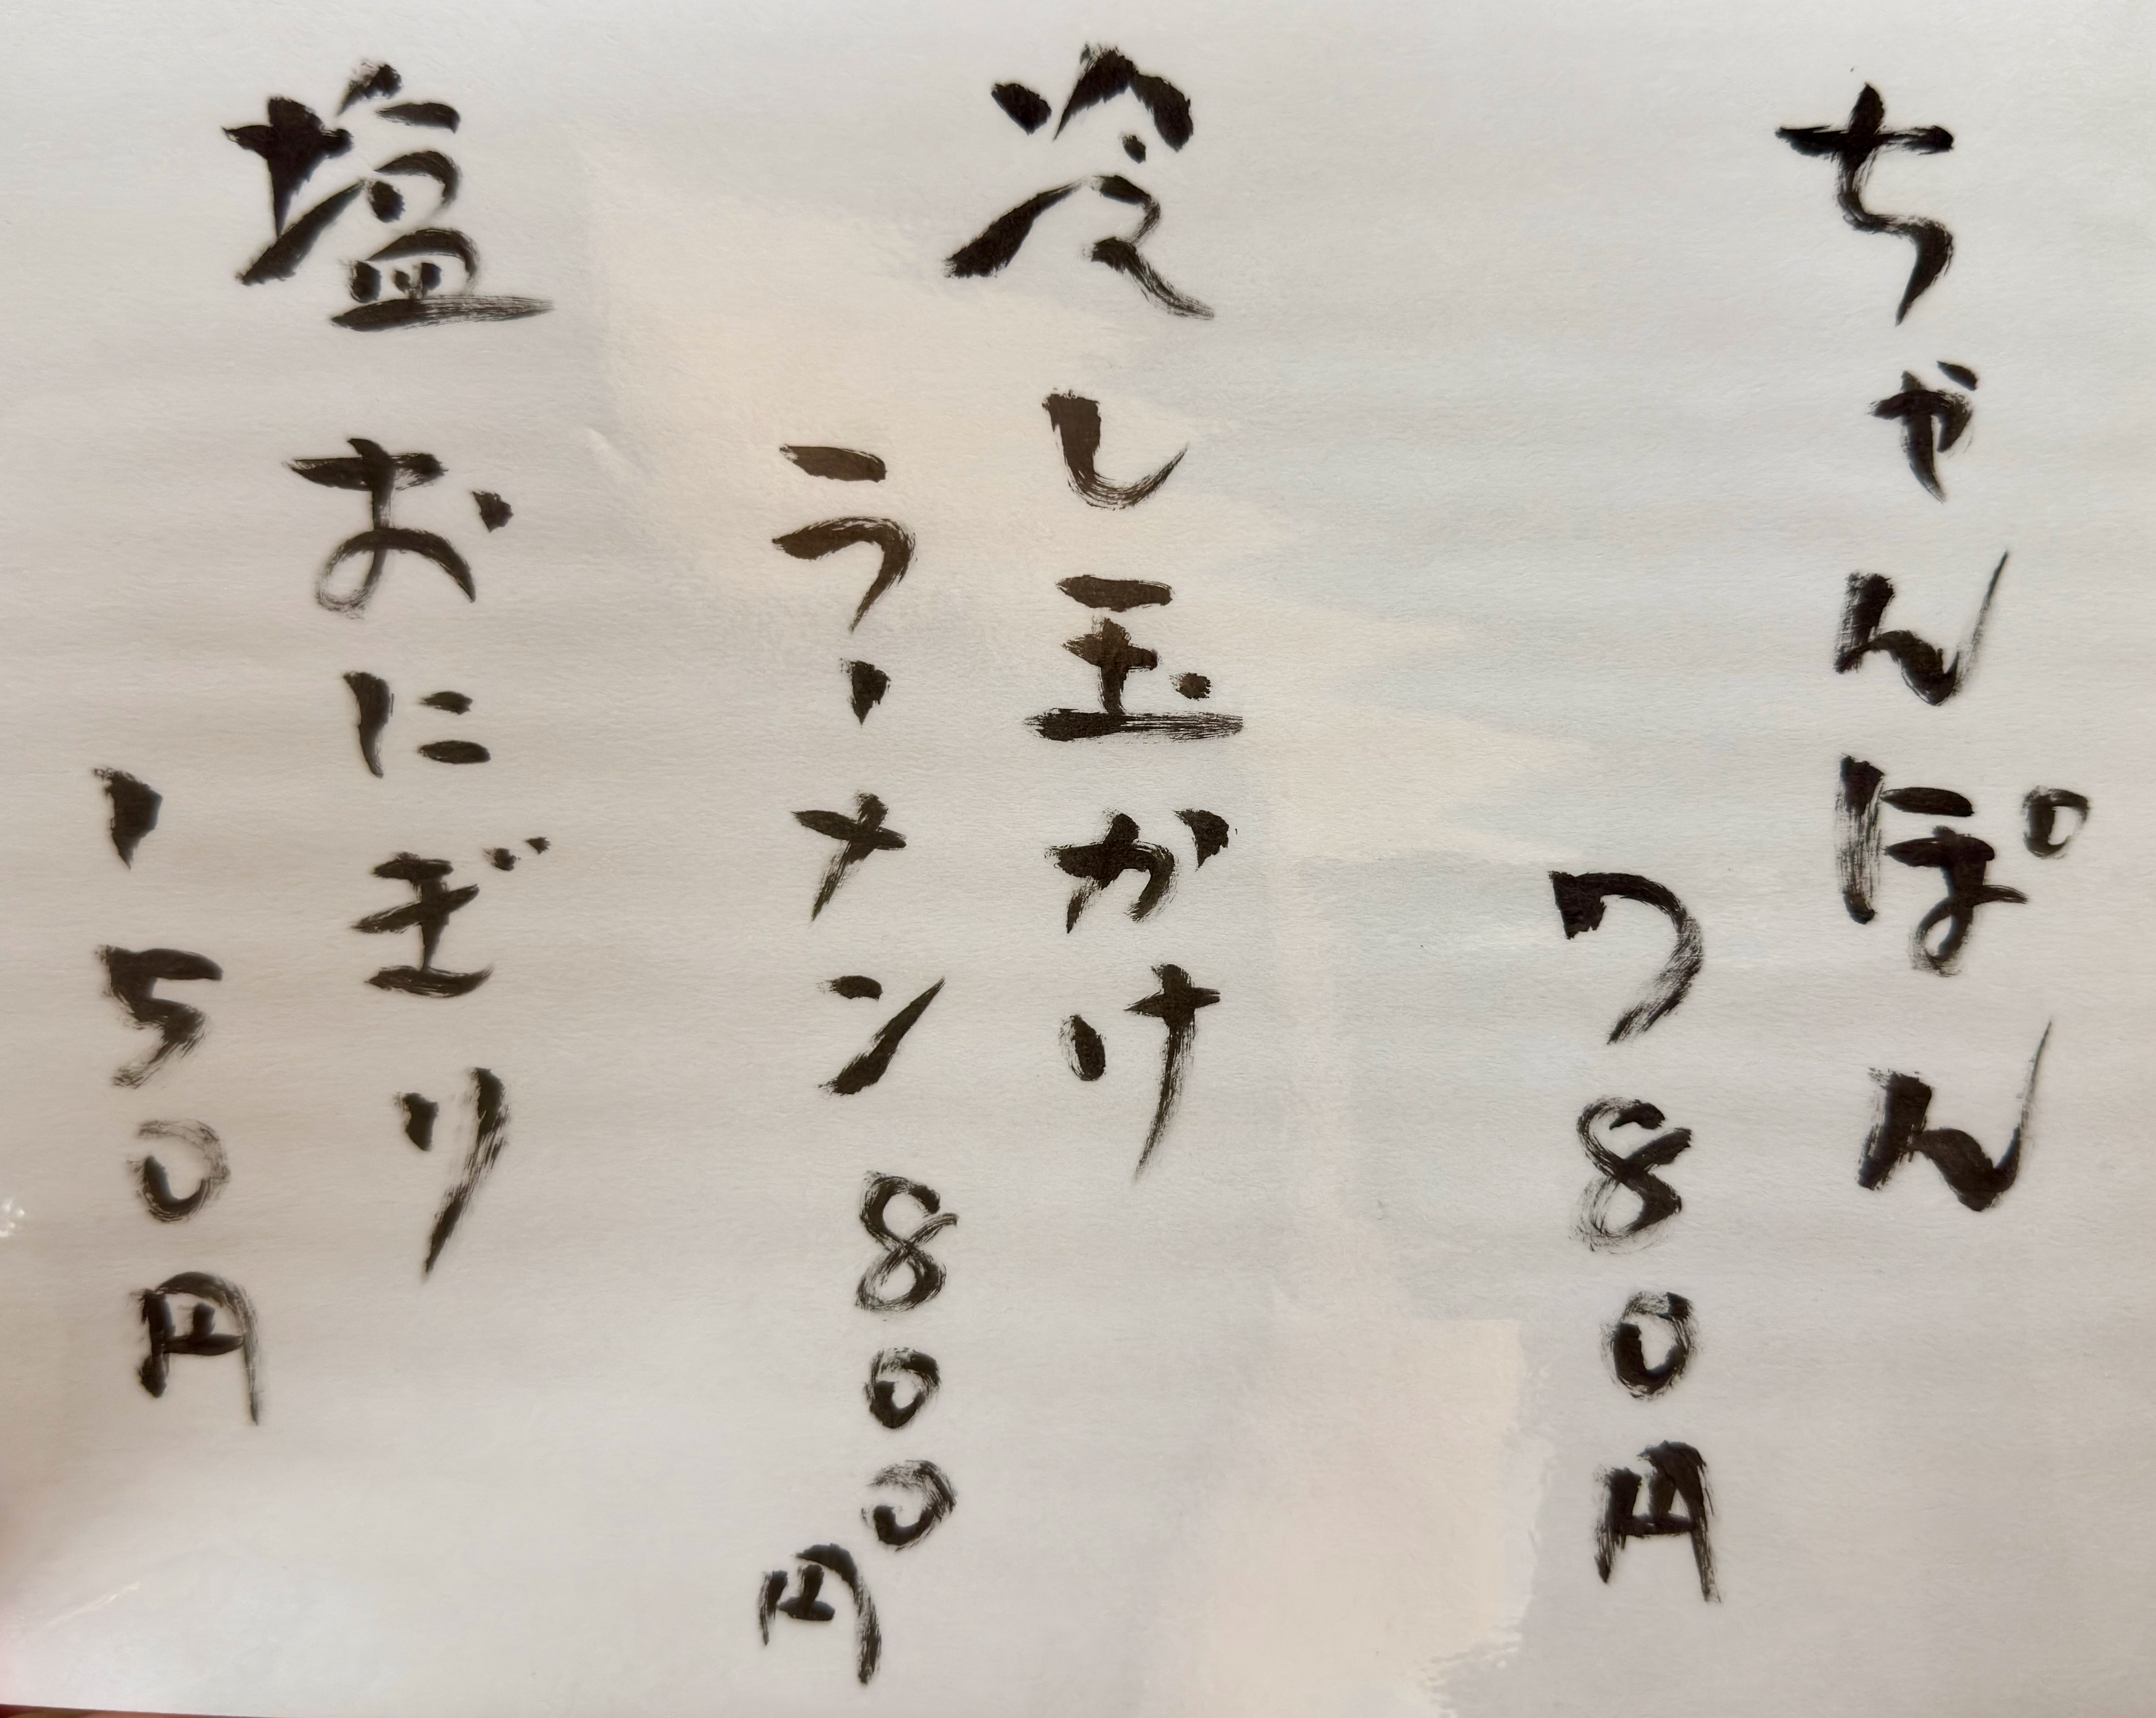 ちゃんぽん
780円
冷し玉かけ
ラーメン 800円
塩おにぎり
150円